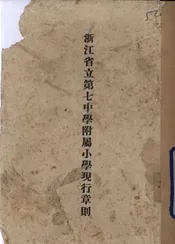 浙江省立第七中學附屬小學現行章則